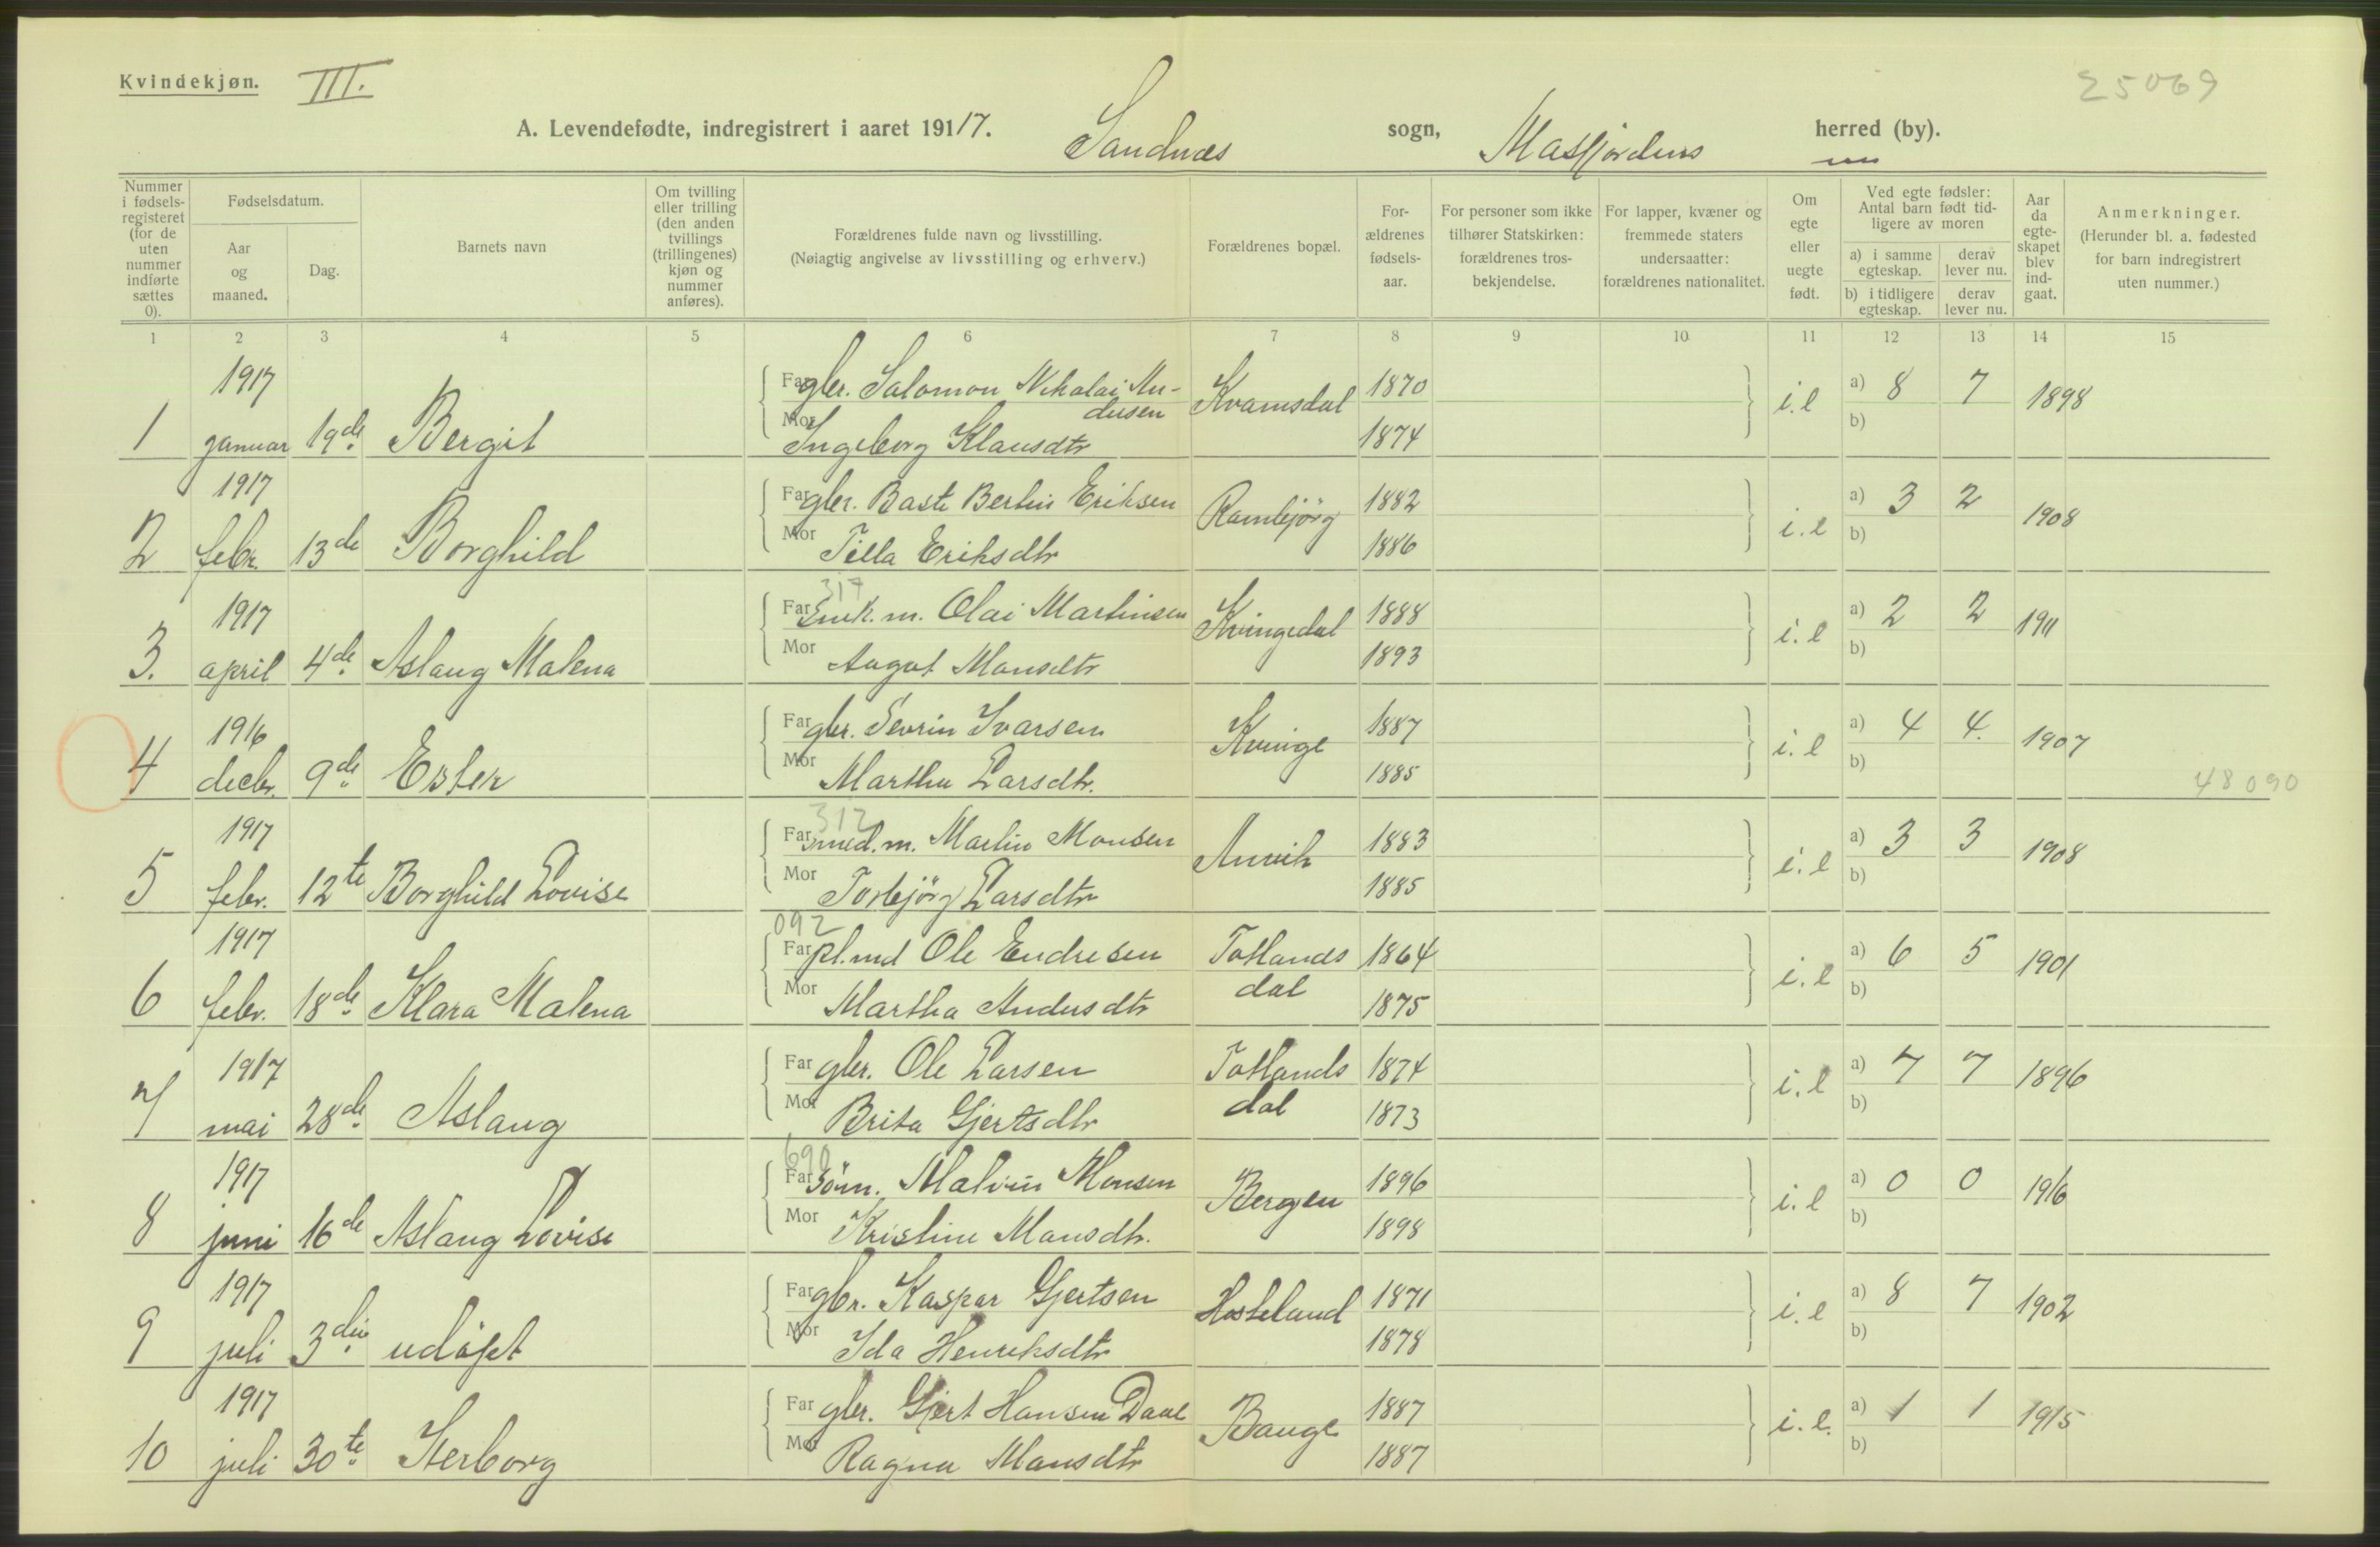 Kvindekjøn. III. 25069
A. Levendefødte, indregistrert i aaret 19117. Sandnes sogn, Masfjordens herred (by).
Nummer i fødselsregisteret (for de uten nummer indførte sættes 0).
Fødselsdatum.
Aar og maaned.
Dag.
Barnets navn
Om tvilling eller trilling (den anden tvillings (trillingenes) kjøn og nummer anføres).
Forældrenes fulde navn og livsstilling.
(Nøiagtig angivelse av livsstilling og erhverv.)
Forældrenes bopæl.
Forældrenes fødselsaar.
For personer som ikke tilhører Statskirken: forældrenes trosbekjendelse.
For lapper, kvæner og fremmede staters undersaatter: forældrenes nationalitet.
Om egte eller uegte født.
Ved egte fødsler: Antal barn født tidligere av moren
a) i samme egteskap. derav lever nu.
b) i tidligere egteskap. derav lever nu.
Aar da egteskapet blev indgaat.
Anmerkninger.
(Herunder bl. a. fødested for barn indregistrert uten nummer.)
1 2 3 4 5 6 7 8 9 10 11 12 13 14 15
1917 Far gbr. Salomon Nikolai An- Kvamsdal 1870 i.e a) 8 7 1898
dersen
1 januar 19de Bergit Mor Ingeborg Klausdtr 1874 b)
1917 Far gbr. Baste Bertin Eriksen Rambjörg 1882 i.e a) 3 2 1908
2 febr. 13de Borghild Mor Tilla Eriksdtr 1886 b)
317
1917 Far m. Olai Martinsen Kvingedal 1888 i.e a) 2 2 1911
3. april 4de Aslaug Malena Mor Aagot Monsdtr 1893 b)
1916 Far gbr. Sevrin Ivarsen Kvinge 1887 i.e a) 4 4. 1907
4 decbr. 9de Ester Mor Martha Larsdtr. 1885 b) 48090
312
1917 Far smed.m. Martin Monsen Anvik 1883 i.e a) 3 3 1908
5 febr. 12te Borghild Lovise Mor Torbjörg Larsdtr 1885 b)
092
1917 Far pl.md Ole Endresen Totlands 1864 i.e a) 6 5 1901
6 febr. 18de Klara Malena Mor Martha Andersdtr dal 1875 b)
1917 Far gbr. Ole Larsen Totlands 1874 i.e a) 7 7 1896
7 mai 28de Aslaug Mor Brita Gjertsdtr dal 1873 b)
690
1917 Far Söm. Malvin Monsen Bergen 1896 i.e a) 0 0 1916
8 juni 16de Aslaug Lovise Mor Kristine Mansdtr. 1898 b)
1917 Far gbr. Kaspar Gjertsen Hosteland 1871 i.e a) 8 7 1902
9 juli 3die udøpt Mor Ida Henriksdtr 1878 b)
1917 Far gbr. Gjert Hansen Daae Bauge 1887 i.e. a) 1 1 1915
10 juli 30te Herborg Mor Ragna Mansdtr 1887 b)